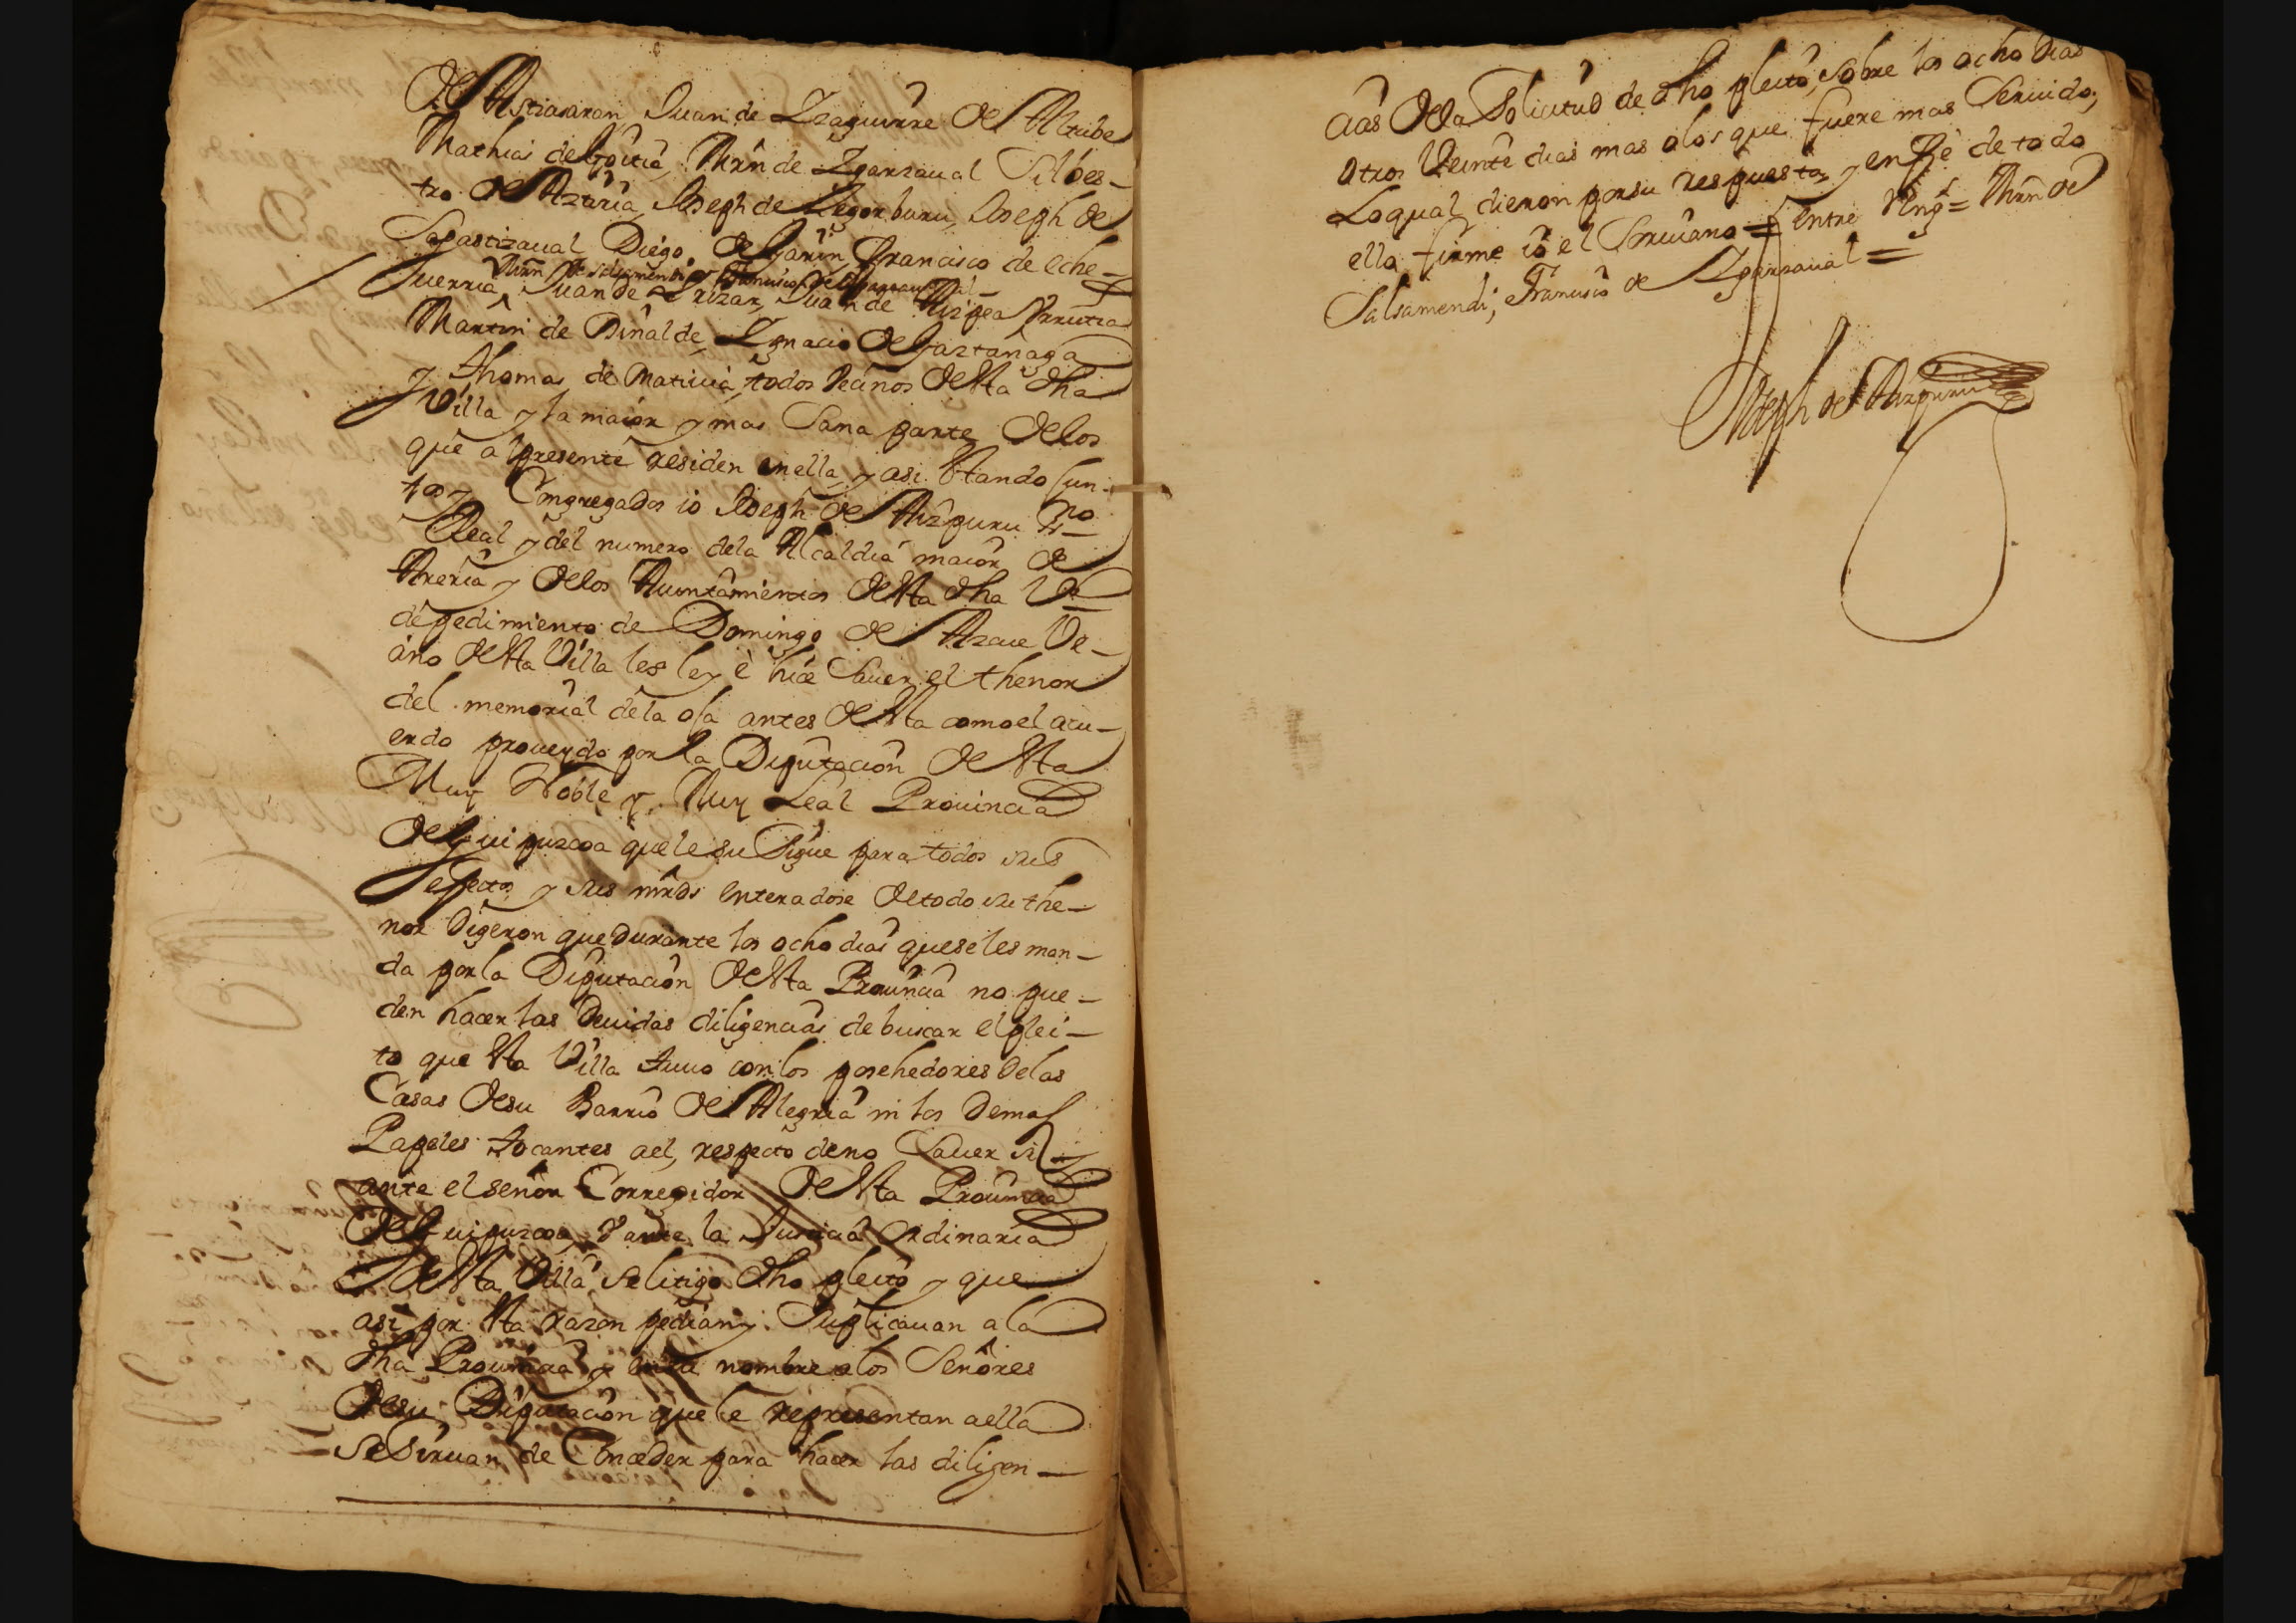 de Astiasaran, Juan de Yzaguirre de Uribe
Mathias de Goitia, Mrn de Ygarzaual Silbes-
tro de Azaria, Joseph de Legorburu, Joseph de
Sagastizaual Diego de Garin, Francisco de Eche-
Mrn de Salsamendi, Francisco de Ygarzaual
uerria, Juan de Irizar, Juan de Aizpea Urrutia
Martin de Binalde, Ygnacio de Gaztañaga
y Thomas de Maticia, todos Vecinos desta dha
Villa y la maior y mas Sana parte delos
que al presente residen en ella, y asi estando Jun-
tos y Congregados io Joseph de Aizpuru Sno
Real y del numero dela Alcaldia maior de
Areria y delos Aiuntamientos desta dha Va
de pedimiento de Domingo de Azcue Ve-
cino desta Villa les ley è hiçe Sauer el thenor
del memorial dela oja antes desta como el acu-
erdo proueydo por la Diputacion desta
Muy Noble y Muy Leal Prouincia
de Guipuzcoa que le su Sigue para todos sus
efectos y sus mrds enteradose de todo su the-
nor Digeron que durante los ocho dias que se les man-
da por la Diputacion desta Prouincia no pue-
den hacer las Deuidas diligencias de buscar el plei-
to que esta Villa tuuo con los posehedores de las
Casas desu Barrio de Alegria ni los Demas
Papeles tocantes ael, respecto de no Sauer si
ante el señor Corregidor desta Prouincia
de Guipuzcoa, o ante la Justicia Ordinaria
desta Villa se litigo dho pleito y que
asi por esta razon pedian y Suplicauan a la
dha Prouincia y en su nombre alos Señores
desu Diputacion que le representan aella
se Siruan de Conceder para hacer las diligen-
cias dela Solicitud de dho pleito, sobre los ocho dias
otros Veinte dias mas o los que fuere mas Seruido,
Loqual dieron por su respuesta, y en fè de todo
ello firme io el Scriuano = Entre Rengs = Mrn de
Salsamendi, Francisco de Ygarzaual =
Joseph de Aizpuru